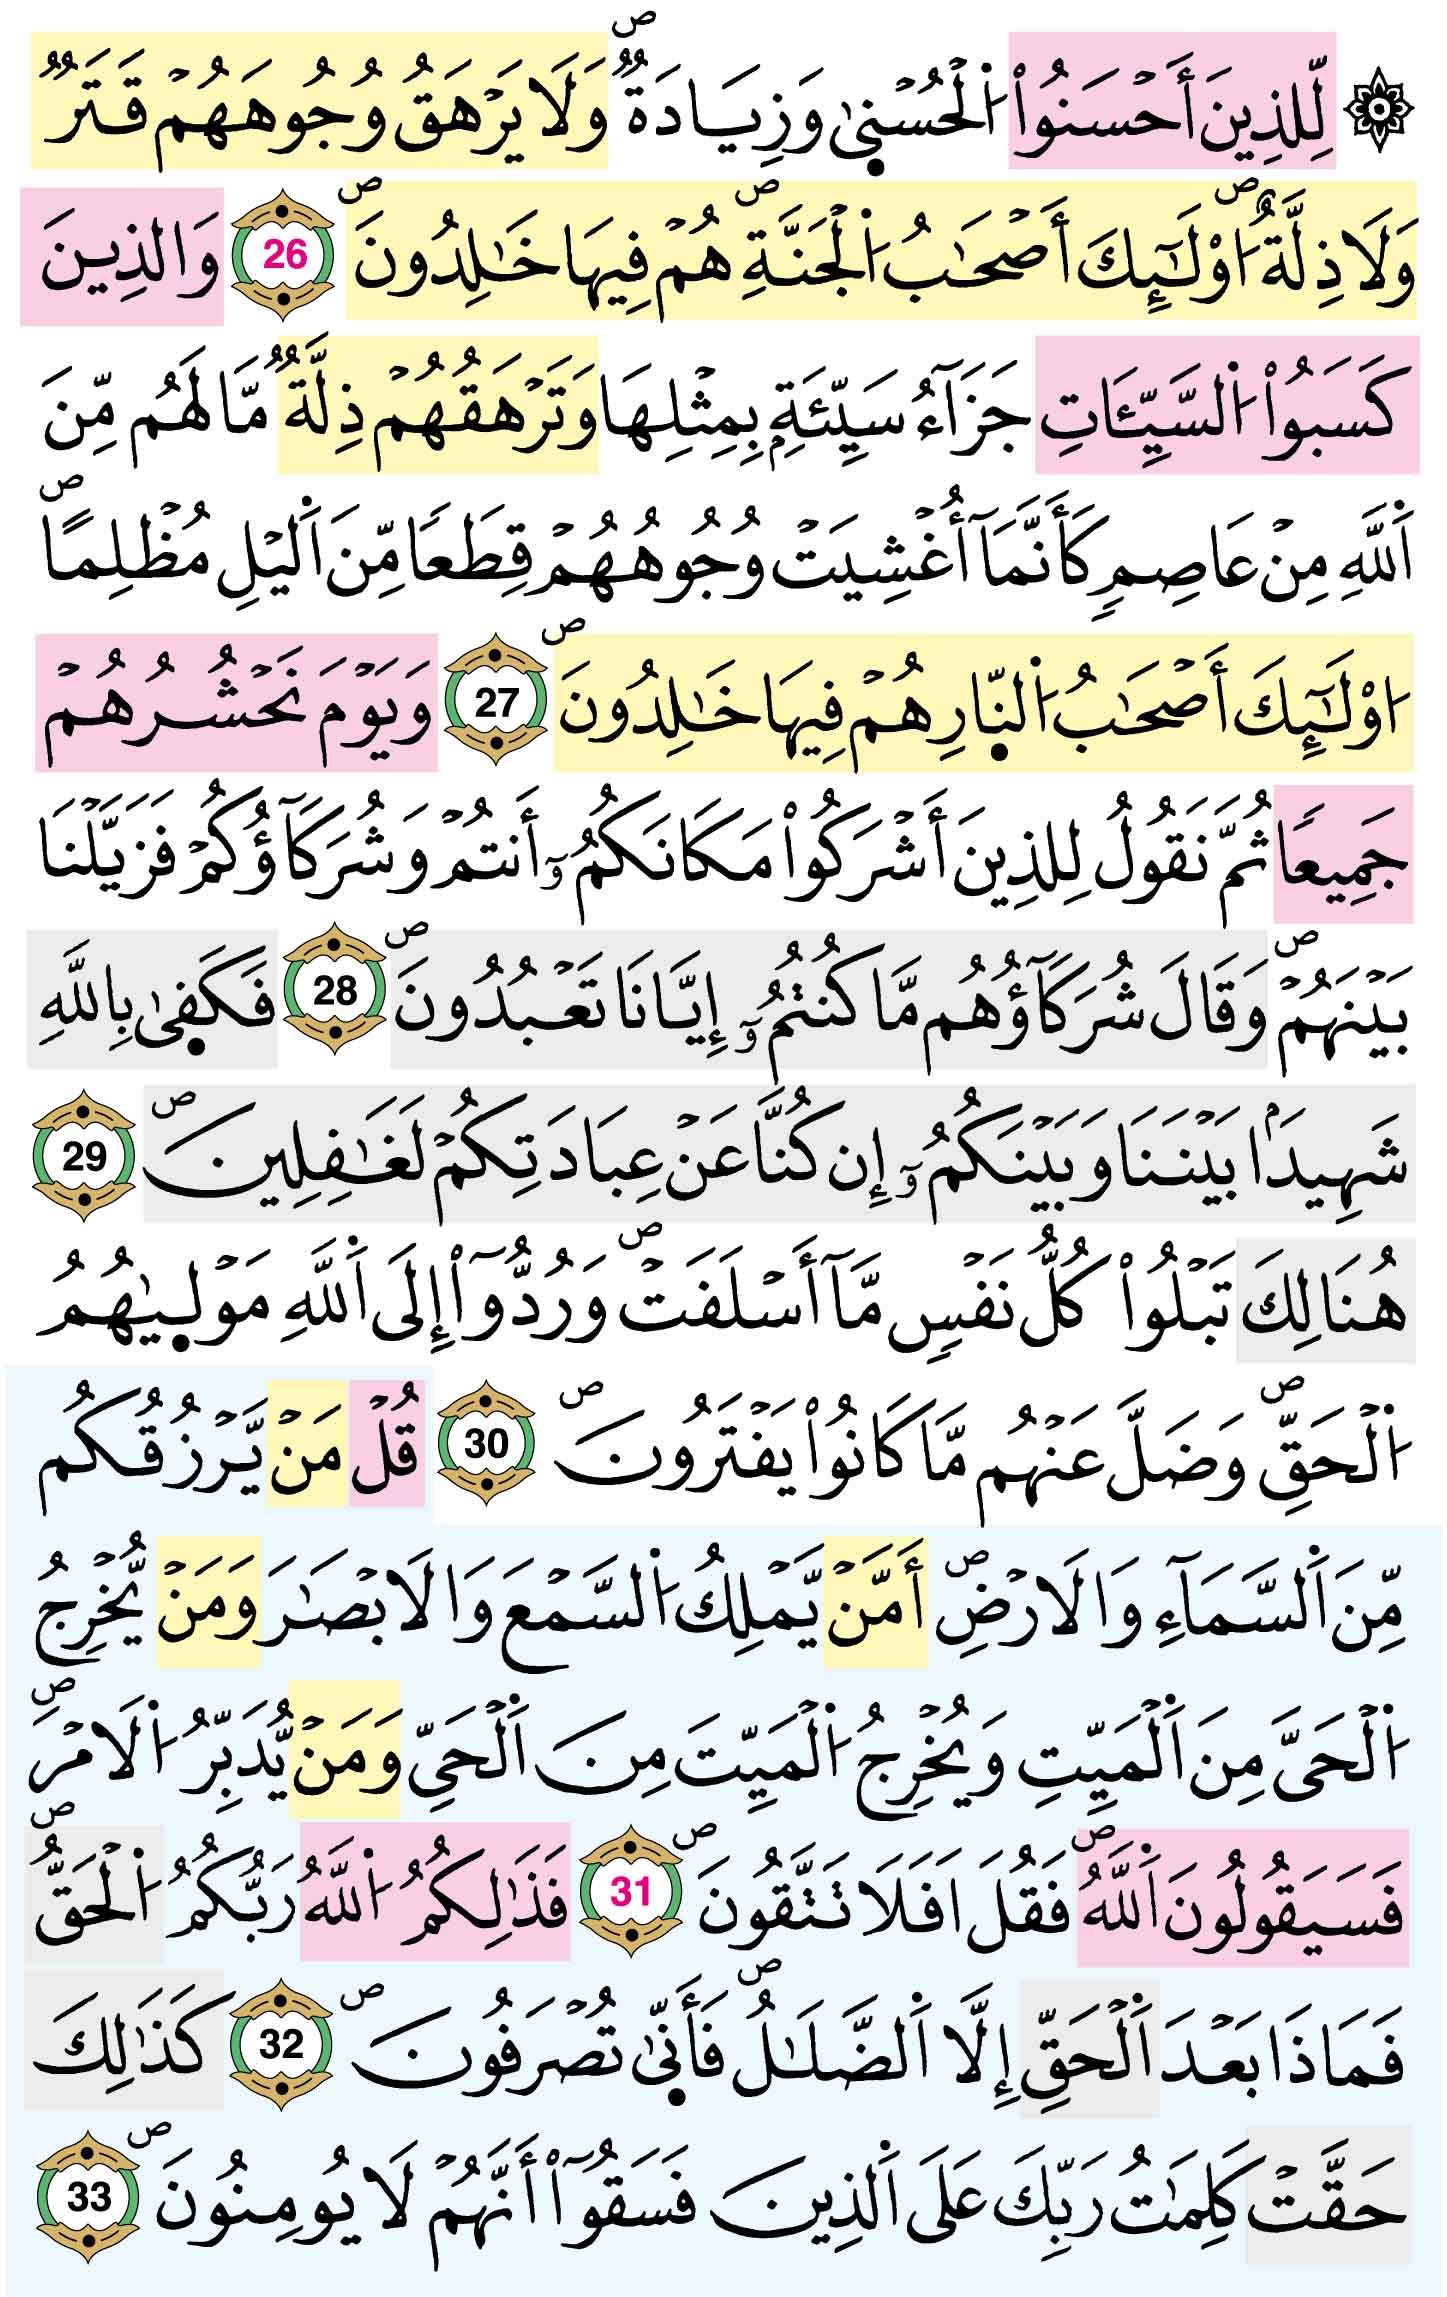 ۞ لِّلذِينَ أَحْسَنُواْ اُ۬لْحُسْن۪ىٰ وَزِيَادَةٞۖ وَلَا يَرْهَقُ وُجُوهَهُمْ قَتَرٞ
وَلَا ذِلَّةٌۖ ا۟وْلَٰٓئِكَ أَصْحَٰبُ اُ۬لْجَنَّةِۖ هُمْ فِيهَا خَٰلِدُونَۖ 26 وَالذِينَ
كَسَبُواْ اُ۬لسَّيِّـَٔاتِ جَزَآءُ سَيِّئَةِۢ بِمِثْلِهَا وَتَرْهَقُهُمْ ذِلَّةٞ مَّا لَهُم مِّنَ
اَ۬للَّهِ مِنْ عَاصِمٖ كَأَنَّمَآ أُغْشِيَتْ وُجُوهُهُمْ قِطَعاٗ مِّنَ اَ۬ليْلِ مُظْلِماًۖ
ا۟وْلَٰٓئِكَ أَصْحَٰبُ اُ۬لنّ۪ارِ هُمْ فِيهَا خَٰلِدُونَۖ 27 وَيَوْمَ نَحْشُرُهُمْ
جَمِيعاٗ ثُمَّ نَقُولُ لِلذِينَ أَشْرَكُواْ مَكَانَكُمُۥٓ أَنتُمْ وَشُرَكَآؤُكُمْ فَزَيَّلْنَا
بَيْنَهُمْۖ وَقَالَ شُرَكَآؤُهُم مَّا كُنتُمُۥٓ إِيَّانَا تَعْبُدُونَۖ 28 فَكَف۪ىٰ بِاللَّهِ
شَهِيداَۢ بَيْنَنَا وَبَيْنَكُمُۥٓ إِن كُنَّا عَنْ عِبَادَتِكُمْ لَغَٰفِلِينَۖ 29
هُنَالِكَ تَبْلُواْ كُلُّ نَفْسٖ مَّآ أَسْلَفَتْۖ وَرُدُّوٓاْ إِلَى اَ۬للَّهِ مَوْل۪يٰهُمُ
اُ۬لْحَقِّۖ وَضَلَّ عَنْهُم مَّا كَانُواْ يَفْتَرُونَۖ 30 قُلْ مَنْ يَّرْزُقُكُم
مِّنَ اَ۬لسَّمَآءِ وَالَارْضِۖ أَمَّنْ يَّمْلِكُ اُ۬لسَّمْعَ وَالَابْصَٰرَ وَمَنْ يُّخْرِجُ
اُ۬لْحَيَّ مِنَ اَ۬لْمَيِّتِ وَيُخْرِجُ اُ۬لْمَيِّتَ مِنَ اَ۬لْحَيِّ وَمَنْ يُّدَبِّرُ اُ۬لَامْرَۖ
فَسَيَقُولُونَ اَ۬للَّهُۖ فَقُلَ اَفَلَا تَتَّقُونَۖ 31 فَذَٰلِكُمُ اُ۬للَّهُ رَبُّكُمُ اُ۬لْحَقُّۖ
فَمَاذَا بَعْدَ اَ۬لْحَقِّ إِلَّا اَ۬لضَّلَٰلُۖ فَأَنّ۪ىٰ تُصْرَفُونَۖ 32 كَذَٰلِكَ
حَقَّتْ كَلِمَٰتُ رَبِّكَ عَلَى اَ۬لذِينَ فَسَقُوٓاْ أَنَّهُمْ لَا يُومِنُونَۖ 33